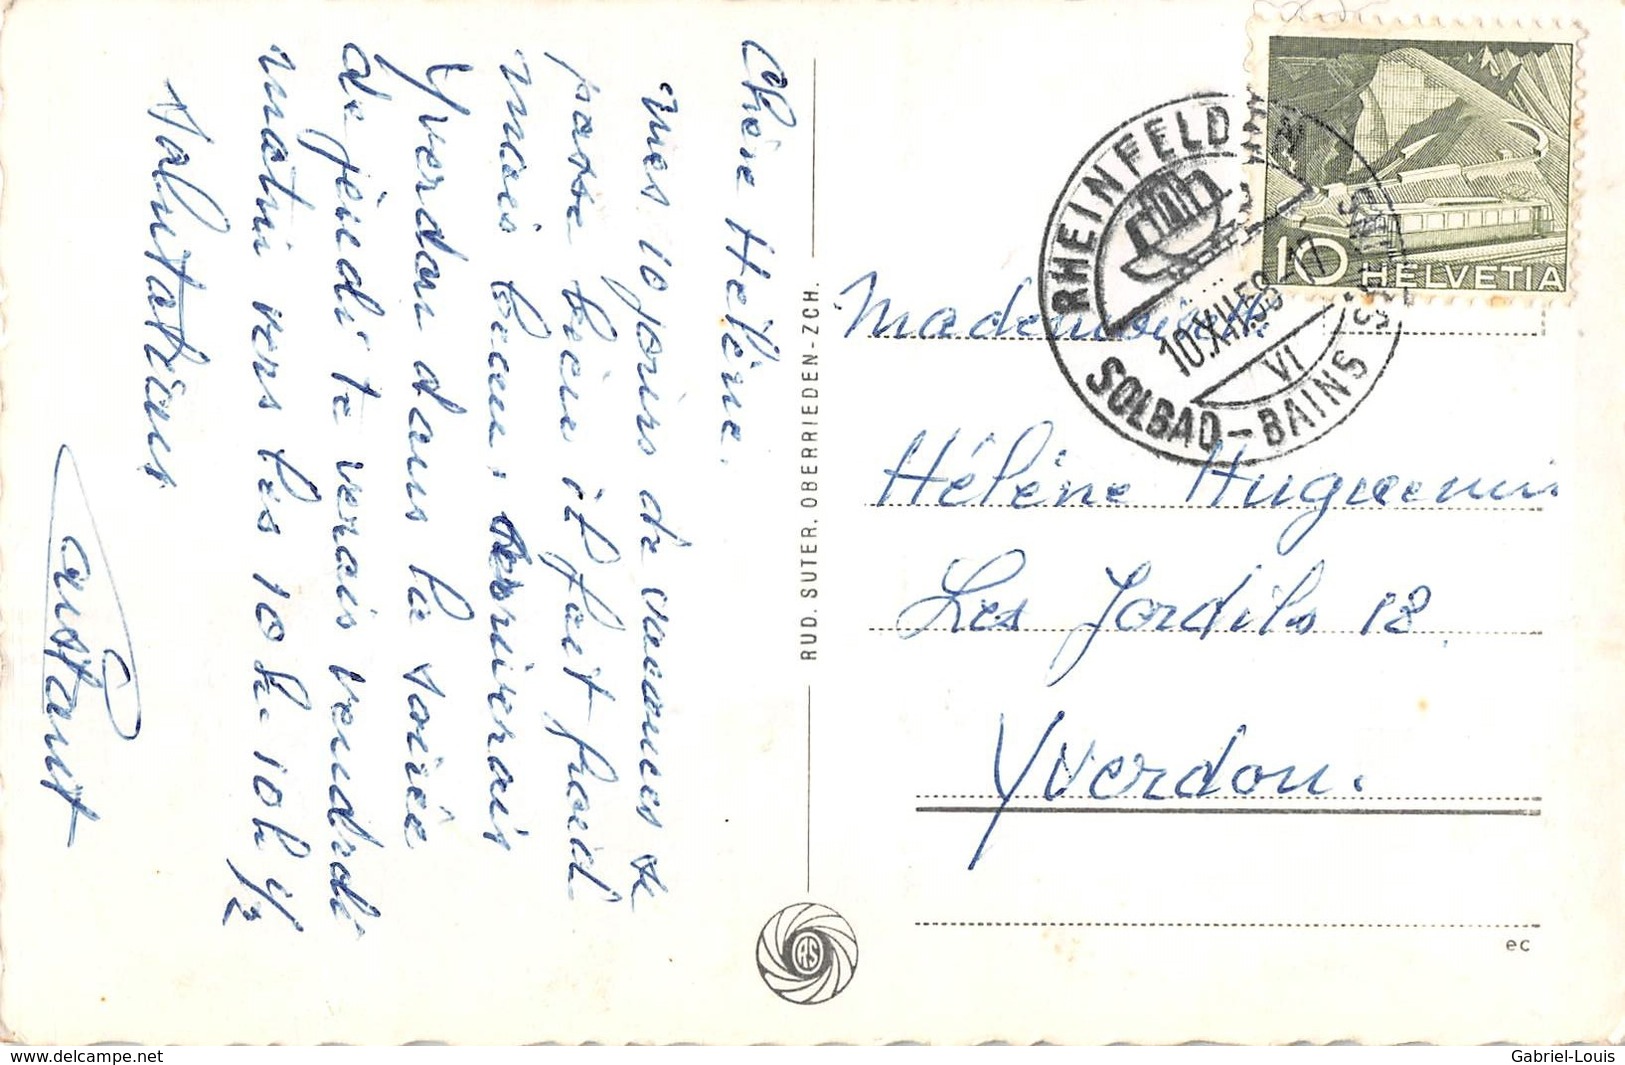 Chère Hélène.
mes 10 jours de vacances se
passe bien il fait froid
mais beau, arriverais
Yverdon dans la soirée
de jeudi te verais vendredi
matin vers les 10h-10h 1/2
Salutations
Constant
RUD. SUTER. OBERRIEDEN-ZCH.
RS
RHEINFELDEN
10.XII.58 17
VI
SOLBAD-BAINS SALINS
10 HELVETIA
Mademoiselle
Hélène Huguenin
Les Jordils 18.
Yverdon.
ec
www.delcampe.net
Gabriel-Louis